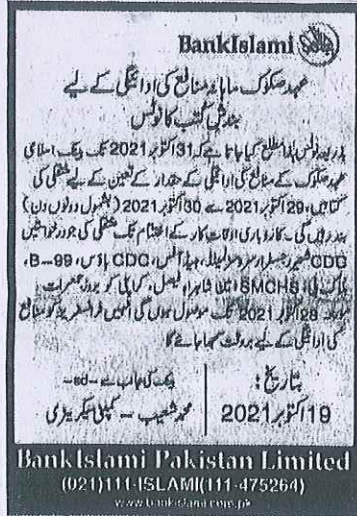 BankIslami
عہد صکوک ماہانہ منافع کی ادائیگی کے لیے
بندش کتب کا نوٹس
بذریعہ نوٹس ہذا مطلع کیا جاتا ہے کہ 31 اکتوبر 2021 تک بینک اسلامی
عہد صکوک کے منافع کی ادائیگی کے حقدار کے تعین کے لیے منتقلی کی
کتابیں، 29 اکتوبر 2021 سے 30 اکتوبر 2021 (بشمول دونوں دن)
بند رہیں گی۔ کاروباری اوقات کار کے اختتام تک منتقلی کی جو درخواستیں
CDC شیئر رجسٹرار سروسز لمیٹڈ، ہیڈ آفس، CDC ہاؤس، 99-B،
بلاک بی، SMCHS، مین شاہراہ فیصل، کراچی کو بروز جمعرات
مورخہ 28 اکتوبر 2021 تک موصول ہوں گی انہیں ٹرانسفریز کو منافع
کی ادائیگی کے لیے بروقت سمجھا جائے گا
بتاریخ:
19 اکتوبر 2021
بینک کی جانب سے -sd-
محمد شعیب - کمپنی سیکریٹری
BankIslami Pakistan Limited
(021)111-ISLAMI(111-475264)
www.bankislami.com.pk